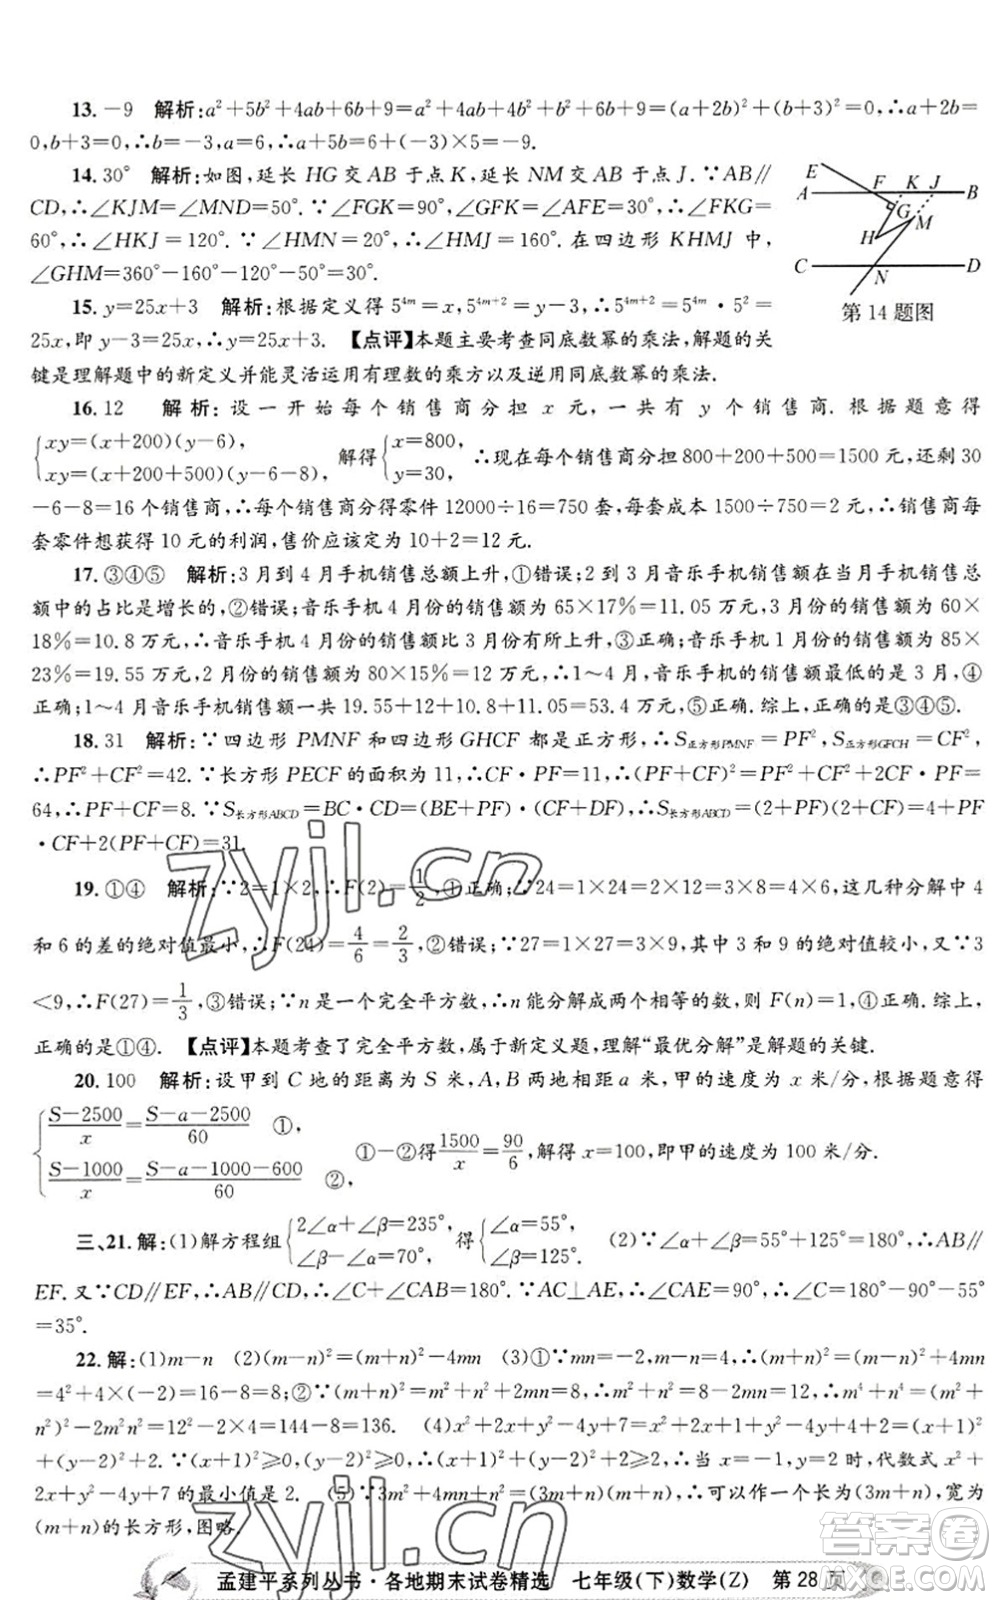 13. -9　解析:a²+5b²+4ab+6b+9=a²+4ab+4b²+b²+6b+9=(a+2b)²+(b+3)²=0,∴a+2b=
0,b+3=0,∴b=-3,a=6,∴a+5b=6+(-3)×5=-9.
14. 30°　解析:如图,延长 HG 交 AB 于点 K,延长 NM 交 AB 于点 J.∵AB∥
CD,∴∠KJM=∠MND=50°.∵∠FGK=90°,∠GFK=∠AFE=30°,∴∠FKG=
60°,∴∠HKJ=120°.∵∠HMN=20°,∴∠HMJ=160°.在四边形 KHMJ 中,
∠GHM=360°-160°-120°-50°=30°.
E
A F K J B
G M
H
C N D
第 14 题图
15. y=25x+3　解析:根据定义得 5⁴ᵐ=x,5⁴ᵐ⁺²=y-3,∴5⁴ᵐ⁺²=5⁴ᵐ·5²=
25x,即 y-3=25x,∴y=25x+3.　【点评】本题主要考查同底数幂的乘法,解题的关
键是理解题中的新定义并能灵活运用有理数的乘方以及逆用同底数幂的乘法.
16. 12　解析:设一开始每个销售商分担 x 元,一共有 y 个销售商.根据题意得
{xy=(x+200)(y-6), xy=(x+200+500)(y-6-8),　解得{x=800, y=30,　∴现在每个销售商分担800+200+500=1500 元,还剩 30
-6-8=16 个销售商,∴每个销售商分得零件 12000÷16=750 套,每套成本 1500÷750=2 元,∴销售商每
套零件想获得 10 元的利润,售价应该定为 10+2=12 元.
17. ③④⑤　解析:3 月到 4 月手机销售总额上升,①错误;2 到 3 月音乐手机销售额在当月手机总销售
额中的占比是增长的,②错误;音乐手机 4 月份的销售额为 65×17%=11.05 万元,3 月份的销售额为 60×
18%=10.8 万元,∴音乐手机 4 月份的销售额比 3 月份有所上升,③正确;音乐手机 1 月份的销售额为 85×
23%=19.55 万元,2 月份的销售额为 80×15%=12 万元,∴1～4 月音乐手机销售额最低的是 3 月,④
正确;1～4 月音乐手机销售额一共 19.55+12+10.8+11.05=53.4 万元,⑤正确.综上,正确的是③④⑤.
18. 31　解析:∵四边形 PMNF 和四边形 GHCF 都是正方形,∴S正方形PMNF=PF²,S正方形GFCH=CF²,
∴PF²+CF²=42.∵长方形 PECF 的面积为 11,∴CF·PF=11,∴(PF+CF)²=PF²+CF²+2CF·PF=
64,∴PF+CF=8.∵S长方形ABCD=BC·CD=(BE+PF)·(CF+DF),∴S长方形ABCD=(2+PF)(2+CF)=4+PF
·CF+2(PF+CF)=31.
19. ①④　解析:∵2=1×2,∴F(2)=1/2,①正确;∵24=1×24=2×12=3×8=4×6,这几种分解中 4
和 6 的差的绝对值最小,∴F(24)=4/6=2/3,②错误;∵27=1×27=3×9,其中 3 和 9 的绝对值较小,又∵3
<9,∴F(27)=1/3,③错误;∵n 是一个完全平方数,∴n 能分解成两个相等的数,则 F(n)=1,④正确.综上,
正确的是①④.　【点评】本题考查了完全平方数,属于新定义题,理解“最优分解”是解题的关键.
20. 100　解析:设甲到 C 地的距离为 S 米,A,B 两地相距 a 米,甲的速度为 x 米/分,根据题意得
{(S-2500)/x=(S-a-2500)/60　①, (S-1000)/x=(S-a-1000-600)/60　②,　①-②得1500/x=90/6,解得 x=100,即甲的速度为 100 米/分.
三、21. 解:(1)解方程组{2∠α+∠β=235°, ∠β-∠α=70°,　得{∠α=55°, ∠β=125°.　(2)∵∠α+∠β=55°+125°=180°,∴AB∥
EF.又∵CD∥EF,∴AB∥CD,∴∠C+∠CAB=180°.∵AC⊥AE,∴∠CAE=90°,∴∠C=180°-90°-55°
=35°.
22. 解:(1)m-n　(2)(m-n)²=(m+n)²-4mn　(3)①∵mn=-2,m-n=4,∴(m+n)²=(m-n)²+4mn
=4²+4×(-2)=16-8=8;②∵(m+n)²=m²+2mn+n²,∴m²+n²=8-2×(-2)=12,∴m⁴+n⁴=(m²+
n²)²-2m²n²=12²-2×4=144-8=136.　(4)x²+2x+y²-4y+7=x²+2x+1+y²-4y+4+2=(x+1)²
+(y-2)²+2.∵(x+1)²≥0,(y-2)²≥0,∴(x+1)²+(y-2)²≥0,∴当 x=-1,y=2 时,代数式 x²+
2x+y²-4y+7 的最小值是 2.　(5)∵3m²+4mn+n²=(3m+n)(m+n),∴可以作一个长为(3m+n),宽为
(m+n)的长方形,图略.
孟建平系列丛书·各地期末试卷精选　七年级(下)数学(Z)　第 28 页
zyjl.cn
zyjl.cn
答案圈
MXQE.COM